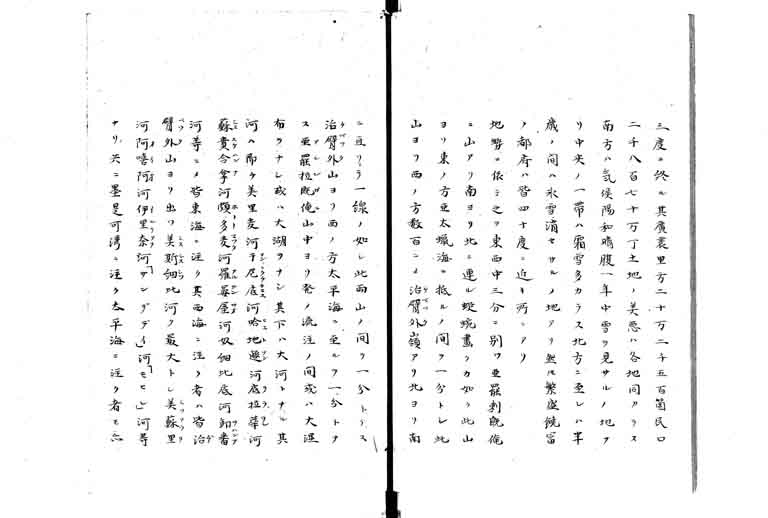 三度ニ終ル其廣袤里方二十万二千五百箇民口
二千八百七十万丁土地ノ美惡ハ各地同カラス
南方ハ気候陽和晴腹一年中雪ヲ見サルノ地ア
リ中央ノ一帶ハ霜雪多カラス北方ニ至レハ半
歳ノ間ハ氷雪消セサルノ地アリ然レ繁盛饒富
ノ都府ハ皆四十度ニ近キ所ニアリ
地勢ニ依ニ之ヲ東西中三分ニ別ツ亜羅剌既俺
ニ山アリ南ヨリ北ニ連ル蜿蜒畫クカ如シ此山
ヨリ東ノ方亜太蠟海ニ抵ルノ間ヲ一分トレ此
山ヨリ西ノ方数百ニノ治臂外嶺アリ北ヨリ南
ニ亘リテ一線ノ如レ此両山ノ間ヲ一分トナス
治臂外山ヨリ西ノ方太平海ニ至ルヲ一分トナ
ス亜羅拉既俺山中ヨリ発ノ流注ノ間或ハ大澤
布ヲナレ或ハ大湖ヲナシ其下ハ大河トナル其
河ハ即ケ美里麦河干尼底河哈地遜河底拉華河
蘇貴合拿河頗多麦河羅莓屋河奴細比底河卸番
河等ニメ皆東海ニ注ク其西海ニ注ク者ハ皆治
臂外山ヨリ出ツ美斯細比河ヲ最大トレ美蘇里
河阿嘻阿河伊里奈河「テングデイ」河「モヒ」河等
ナリ共ニ墨是可湾ニ注ク太平海ニ注ク者ヒ忘